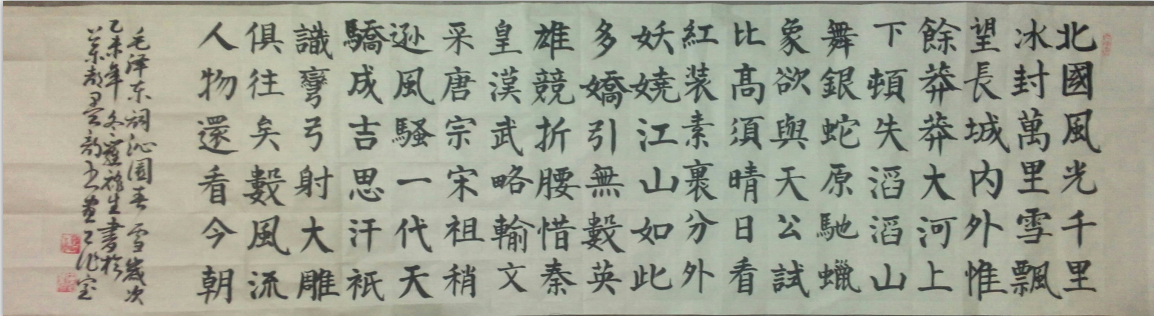 北國風光千里
冰封萬里雪飄
望長城內外惟
餘莽莽大河上
下頓失滔滔山
舞銀蛇原馳蠟
象欲與天公試
比髙須晴日看
紅装素裹分外
妖嬈江山如此
多嬌引無數英
雄競折腰惜秦
皇漢武略輸文
采唐宗宋祖稍
逊風騷一代天
驕成吉思汗祇
識彎弓射大雕
俱往矣數風流
人物還看今朝
毛泽东词沁園春雪歲次
乙未年冬生書於
墨韵书画工作室